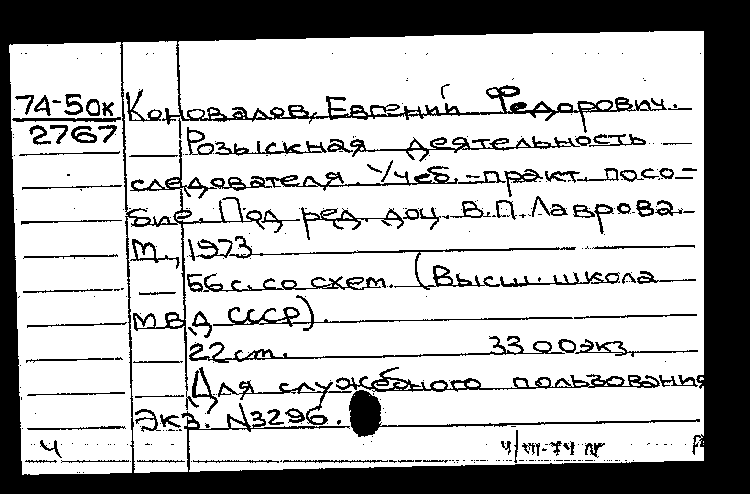 74-5ок Коновалов, Евгений Федорович.
2767 Розыскная деятельность
следователя. Учеб.-практ. посо-
бие. Под ред. доц. В.П.Лаврова.
М., 1973.
56 с. со схем. (Высш. школа
МВД СССР).
22 см. 3300 экз.
Для служебного пользования
Экз. N3296.
Ч 4/VII-74